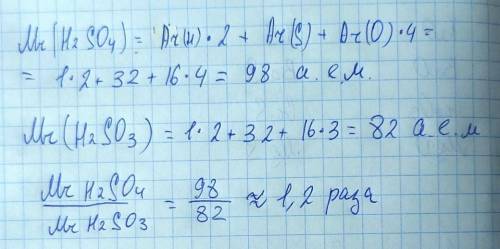 Mr(H2SO4) = Ar(H)·2 + Ar(S) + Ar(O)·4 =
= 1·2 + 32 + 16·4 = 98 а.е.м.
Mr(H2SO3) = 1·2 + 32 + 16·3 = 82 а.е.м
Mr H2SO4 / Mr H2SO3 = 98/82 ≈ 1,2 раза